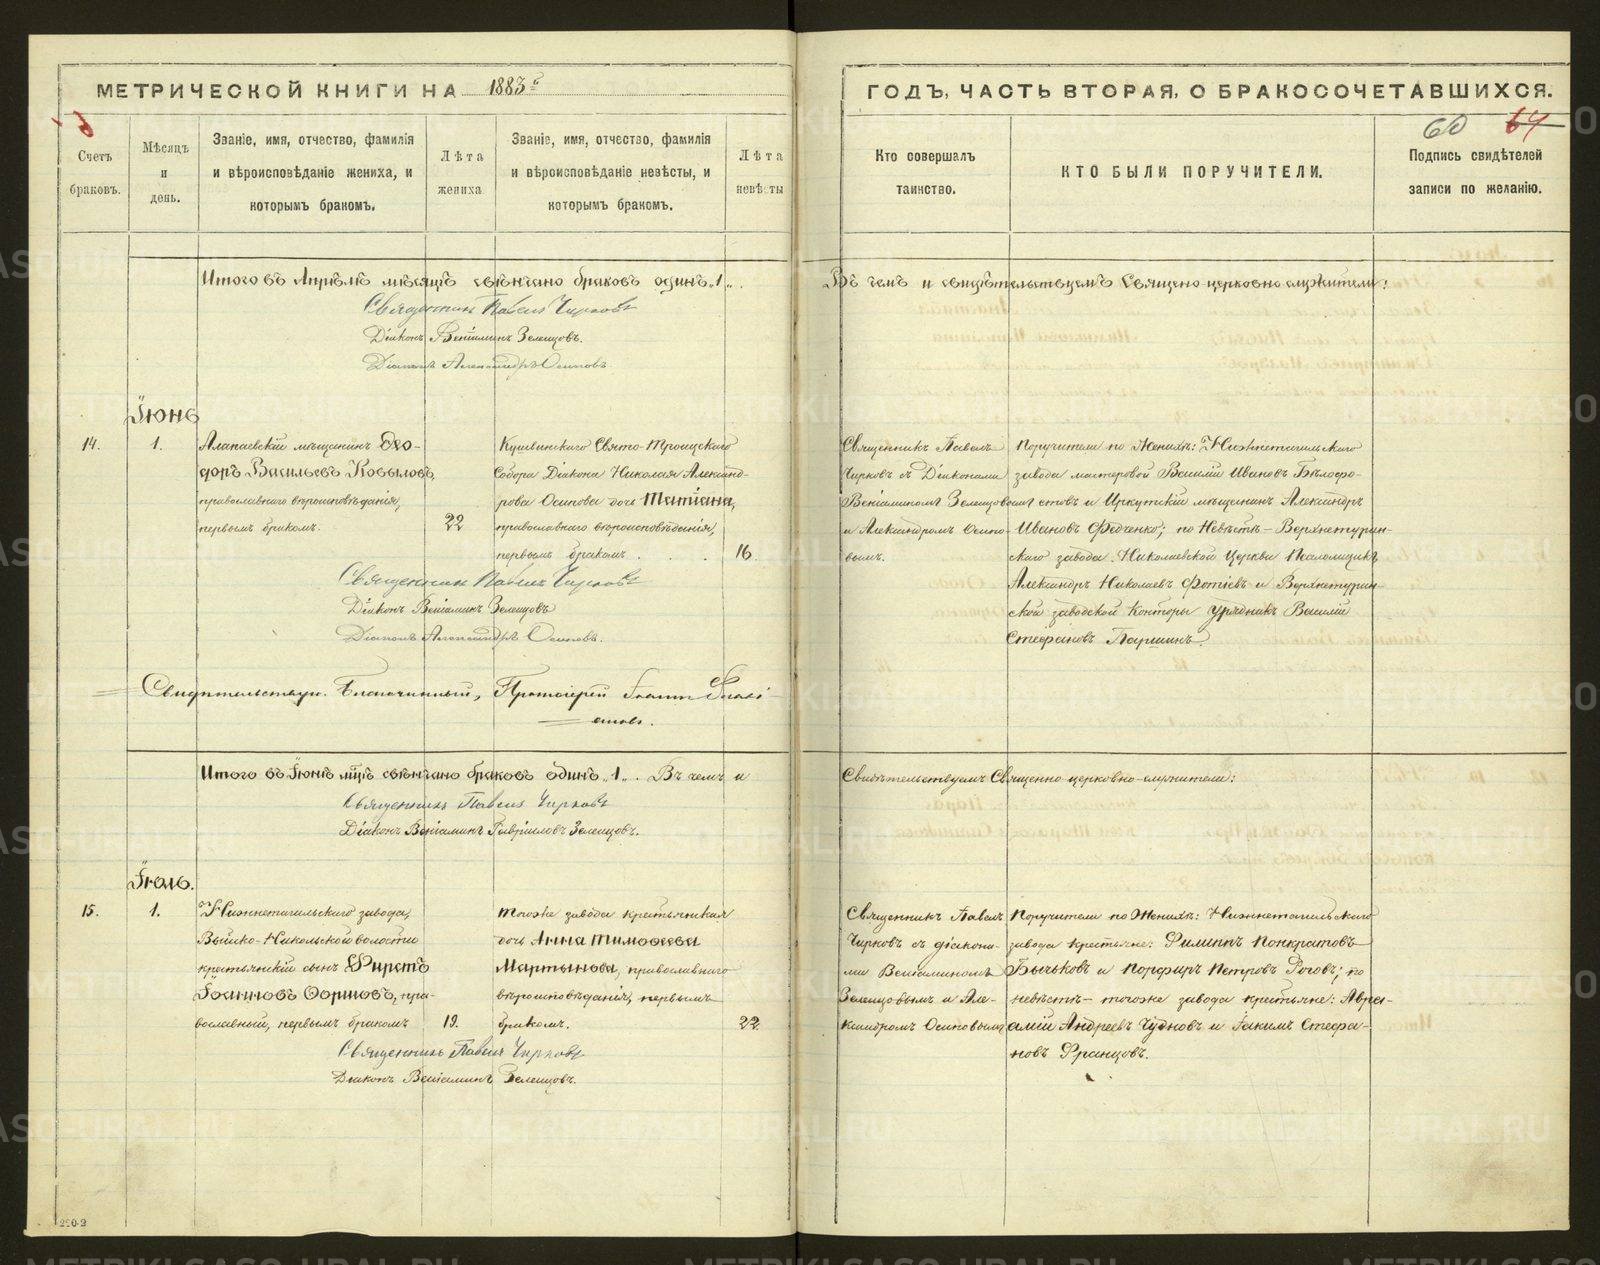 МЕТРИЧЕСКОЙ КНИГИ НА 1883 г.
ГОДЪ, ЧАСТЬ ВТОРАЯ, О БРАКОСОЧЕТАВШИХСЯ.
60 64
Счетъ
браковъ.
Мѣсяцъ
и
день.
Званіе, имя, отчество, фамилія
и вѣроисповѣданіе жениха, и
которымъ бракомъ.
Лѣта
жениха
Званіе, имя, отчество, фамилія
и вѣроисповѣданіе невѣсты, и
которымъ бракомъ.
Лѣта
невѣсты
Кто совершалъ
таинство.
КТО БЫЛИ ПОРУЧИТЕЛИ.
Подпись свидѣтелей
записи по желанію.
Итого въ Апрѣлѣ мѣсяцѣ свѣнчано браковъ одинъ „1„.
Въ чемъ и свидѣтельствуемъ Священо церковно служители:
Священникъ Павелъ Чирковъ
Діаконъ Веніаминъ Зеленцовъ.
Діаконъ Александръ Осиповъ
Іюнь
14.
1.
Алапаевскій мѣщенинъ Ѳео-
доръ Васильевъ Ковыловъ,
православнаго вѣроисповѣданія,
первымъ бракомъ.
22
Кушвинскаго Свято-Троицкаго
Собора Діакона Николая Александ-
рова Осипова дочь Татіана,
православнаго вѣроисповѣданія,
первымъ бракомъ . . .
16.
Священникъ Павелъ
Чирковъ съ Діаконами
Веніаминомъ Зеленцовымъ
и Александромъ Осипо-
вымъ.
Поручители по Женихѣ: Нижнетагильскаго
завода мастеровой Василій Ивановъ Бѣлофо-
стовъ и Иркутскій мѣщенинъ Александръ
Ивановъ Федченко; по Невѣстѣ – Верхнетурин-
скаго завода Николаевской Церкви Псаломщикъ
Александръ Николаевъ Фотіевъ и Верхнетурин-
ской заводской Конторы Урядникъ Василій
Стефановъ Паршинъ.
Священникъ Павелъ Чирковъ
Діаконъ Веніаминъ Зеленцовъ
Діаконъ Александръ Осиповъ.
Свидѣтельствую. Благочинный, Протоіерей Іоаннъ
Итого въ Іюнѣ мѣсяцѣ свѣнчано браковъ одинъ „1„. Въ чемъ и
Свидѣтельствуемъ Священно-церковно-служители:
Священникъ Павелъ Чирковъ
Діаконъ Веніаминъ Гавріиловъ Зеленцовъ.
Іюль.
15.
1.
Нижнетагильскаго завода,
Выйско-Никольской волости
крестьянскій сынъ Фирстъ
Іоанновъ Ѳоршовъ, пра-
вославный, первымъ бракомъ
19.
Тогоже завода крестьянская
дочь Анна Тимоѳеева
Мартынова, православнаго
вѣроисповѣданія, первымъ
бракомъ.
22
Священникъ Павелъ
Чирковъ съ діакона-
ми Веніаминомъ
Зеленцовымъ и Але-
ксандромъ Осиповымъ
Поручители по Женихѣ: Нижнетагильскаго
завода крестьяне: Филиппъ Понкратовъ
Бычьковъ и Порфиръ Петровъ Роговъ; по
невѣстѣ – тогоже завода крестьяне: Авра-
амій Андреевъ Чудновъ и Іакимъ Стефа-
новъ Францовъ.
Священникъ Павелъ Чирковъ
Діаконъ Веніаминъ Зеленцовъ.
290-2
METRIKI.GASO-URAL.RU